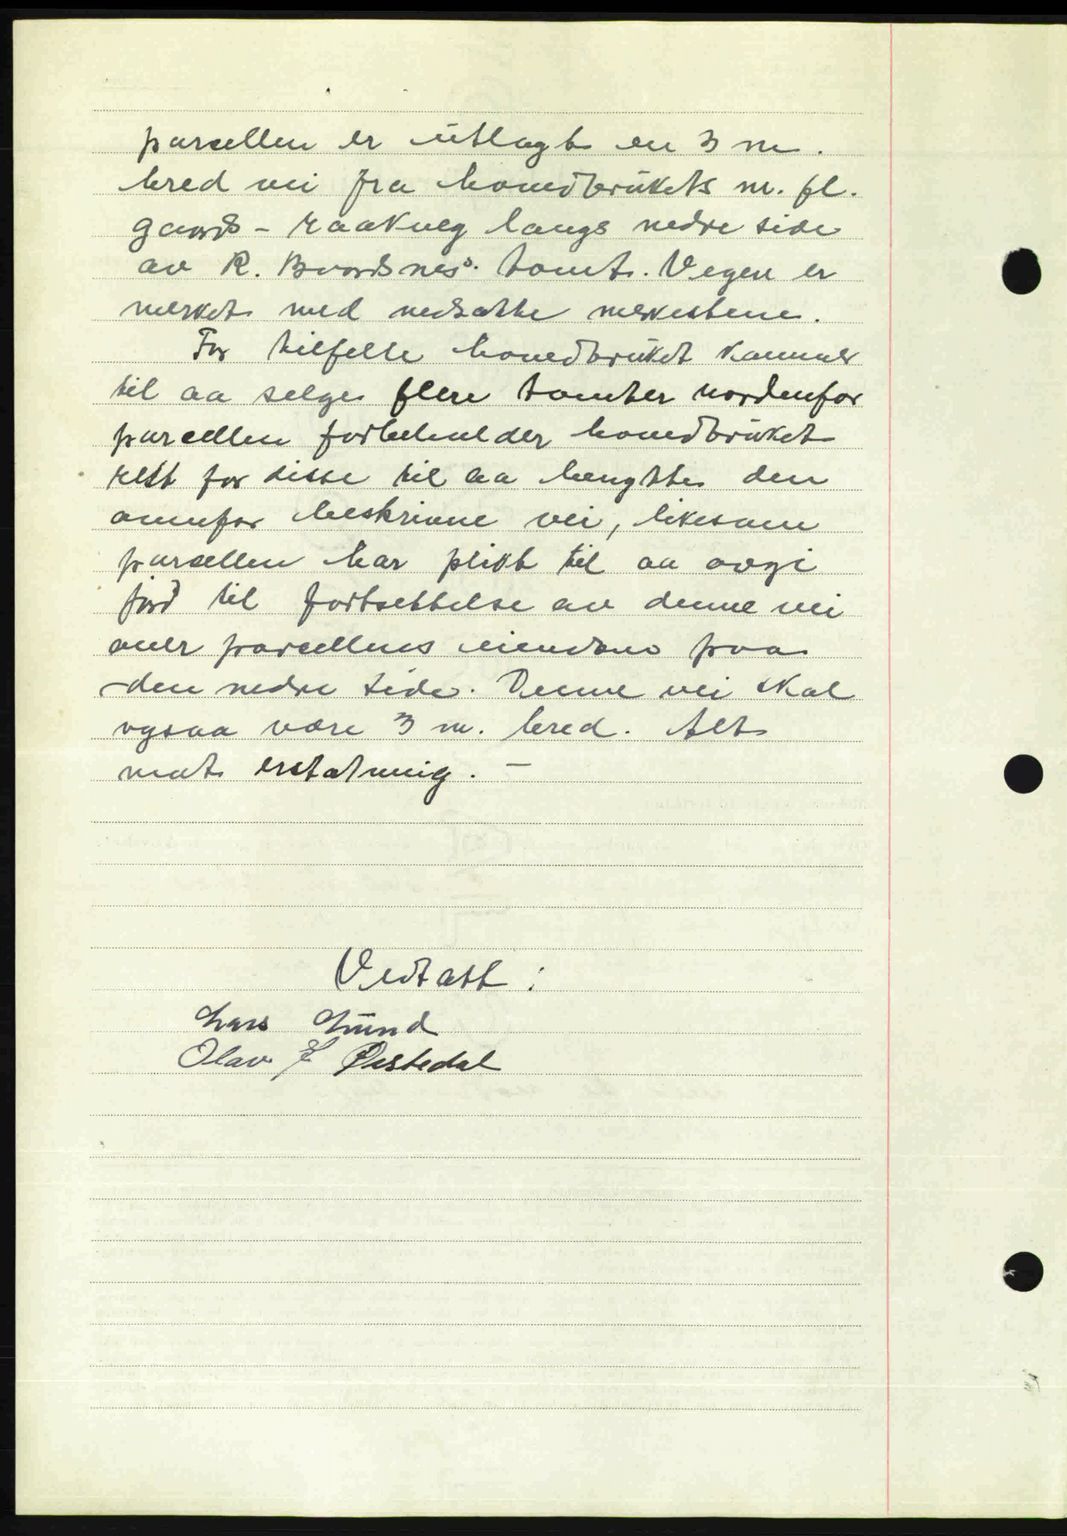 parsellen er utlagt en 3 m.
bred vei fra hovedbrukets m. fl.
gaards - raakveg langs nedre side
av R. Baardsnes. tomt. Vegen er
merket med nedsatte merkestene.
For tilfelle hovedbruket kommer
til aa selge flere tomter nordenfor
parcellen forbeholder hovedbruket
rett for disse til aa benytte den
ovenfor beskrivne vei, likesom
parsellen har plikt til aa avgi
jord til fortsettelse av denne vei
over parcellens eiendom paa
den nedre side. Denne vei skal
ogsaa være 3 m. bred. Alt
mot erstatning. —
Vedtatt :
Lars Lund
Olav Østedal